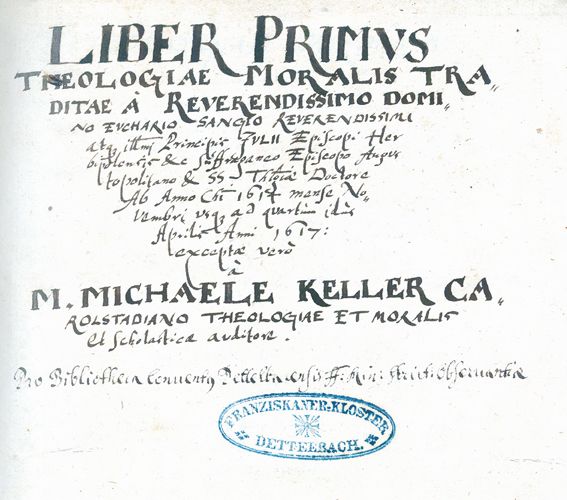 LIBER PRIMVS
THEOLOGIAE MORALIS TRA„
DITAE A REVERENDISSIMO DOMI„
NO EVCHARIO SANGIO REVERENDISSIMI
atq illmi Principis IVLII Episcopi Her
bipolensis &c suffraganeo Episcopo Augus
topolitano & SS. Doctore
Ab Anno Chi 1614 mense No„
vembri usq ad quartum idus
Aprilis Anni 1617:
exceptae verò
à
M. MICHAELE KELLER CA„
ROLSTADIANO THEOLOGIAE ET MORALIS
et scholasticae auditore.
Pro Bibliotheca Conventus Dettelbacensis ff. Min: strict: observantiae
FRANZISKANER-KLOSTER
DETTELBACH.